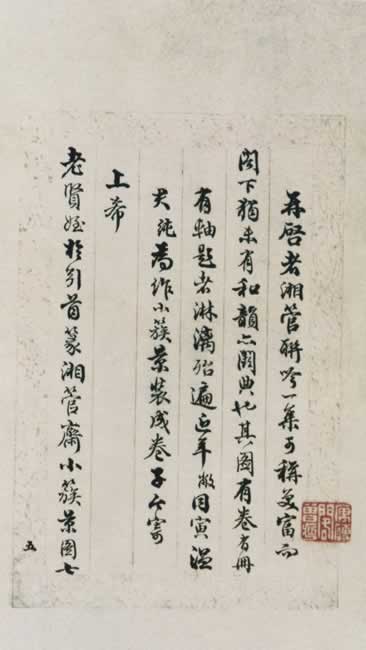 再啓者湘管聯吟一集可稱美富而
閣下猶未有和韻亦闕典也其圖有卷有冊
有軸題者淋漓殆遍近年敝同寅溫
純爲作小簇景裝成卷子今寄
上希
老賢姪於引首篆湘管齋小簇景圖七
五